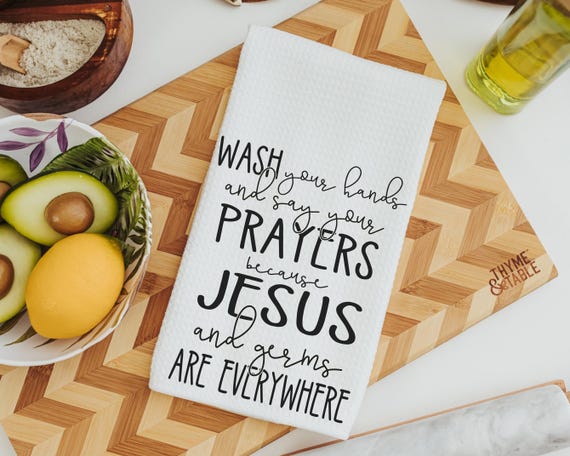 WASH your hands
and say your
PRAYERS
because
JESUS
and germs
ARE EVERYWHERE
THYME
& TABLE